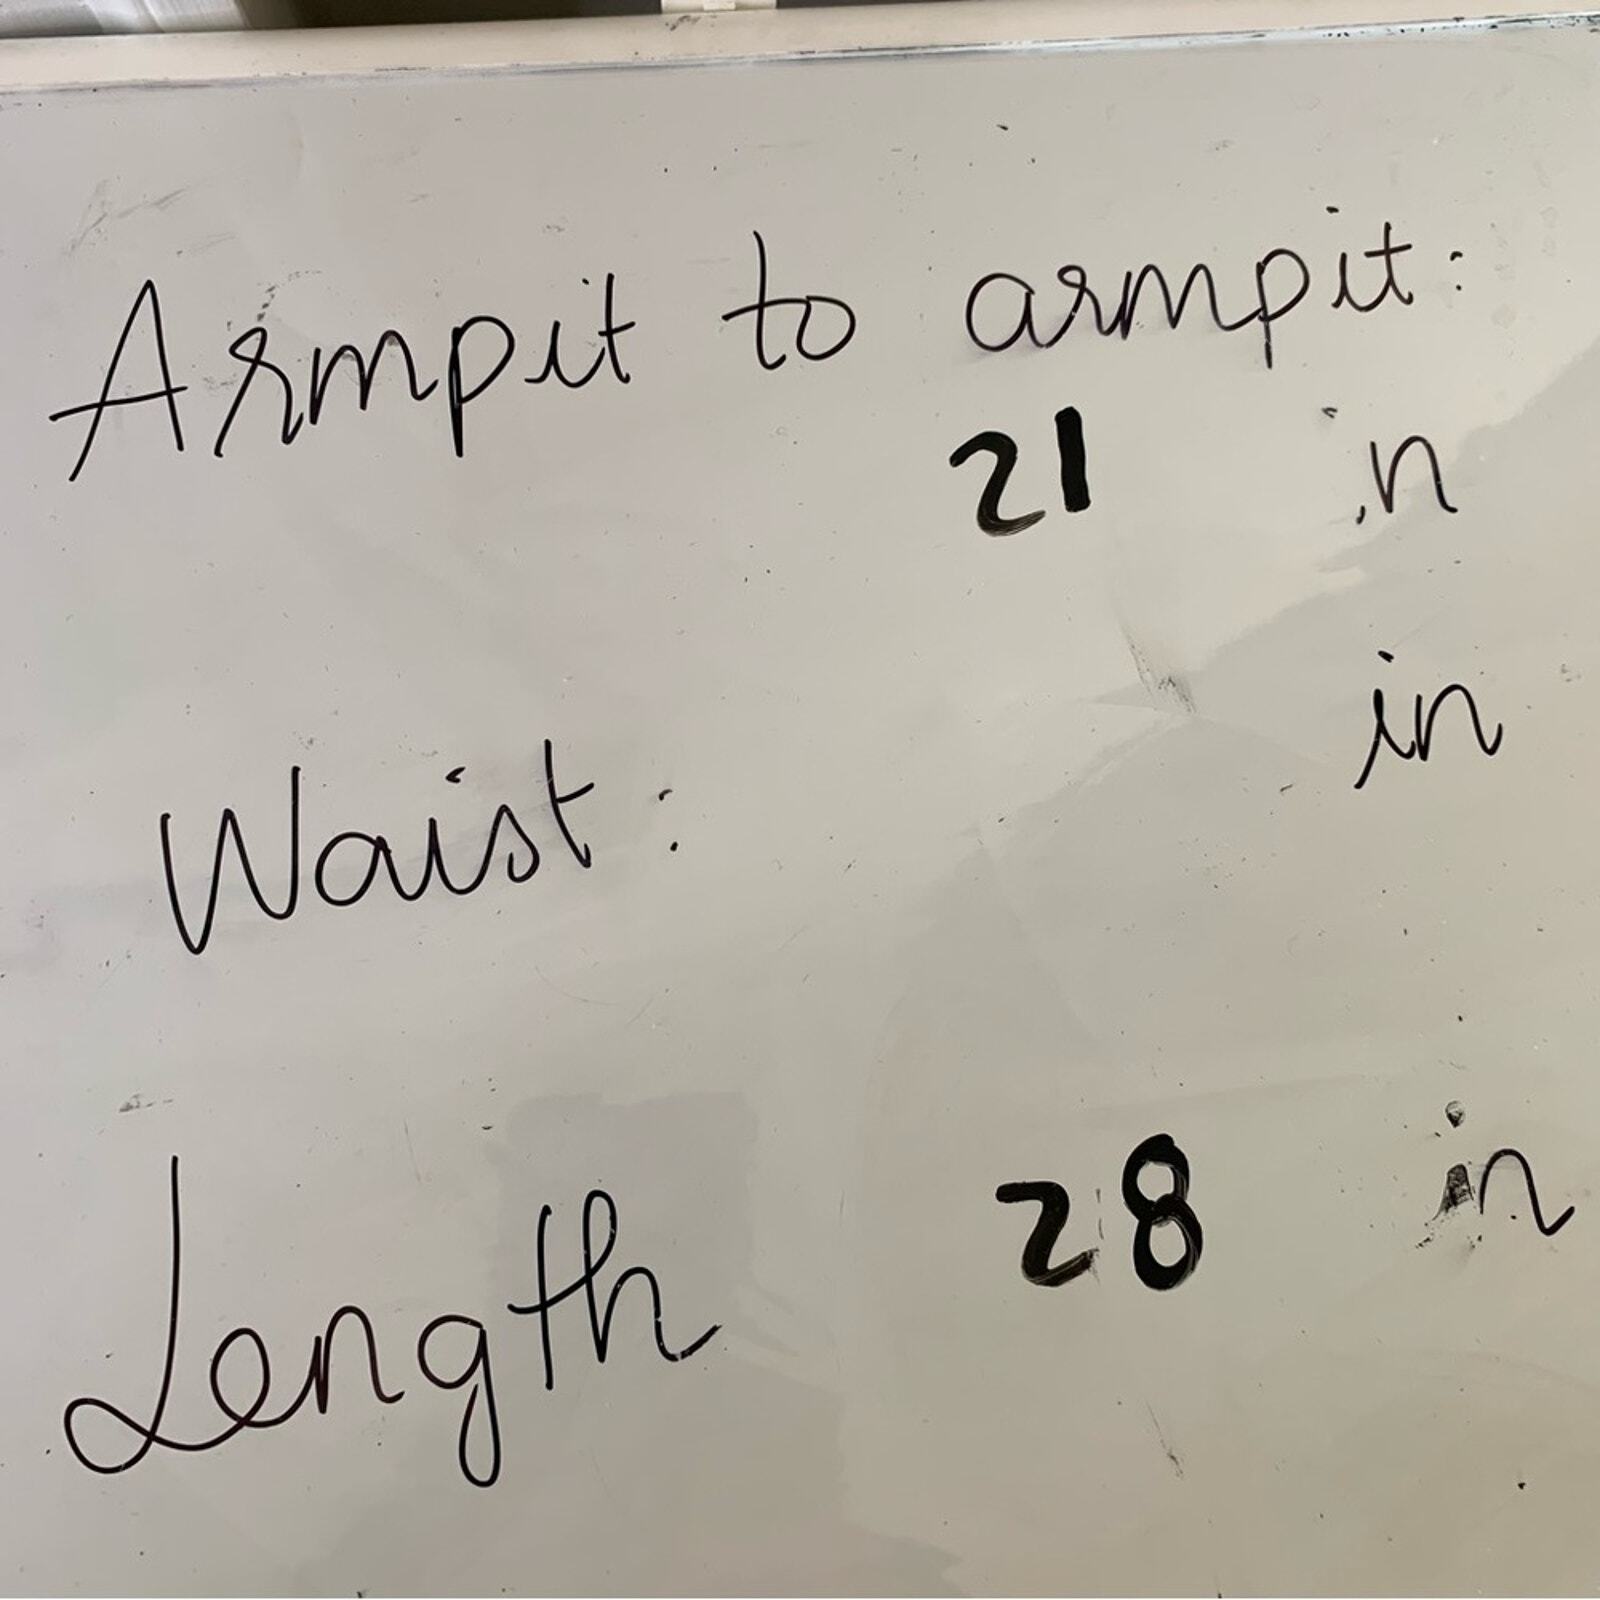 Armpit to armpit:
21 in
Waist: in
Length 28 in